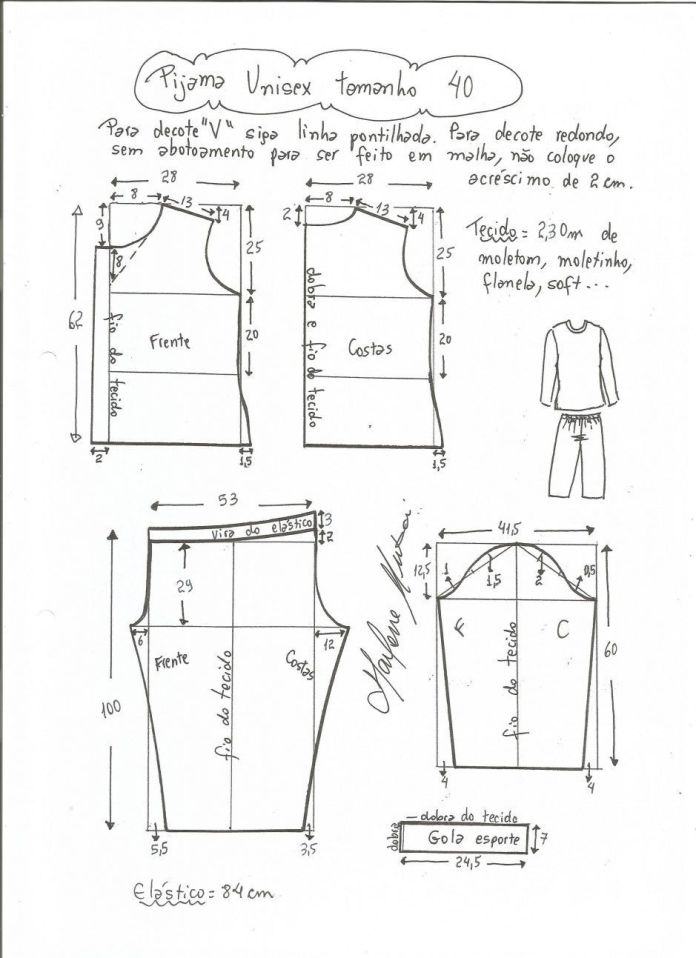 Pijama Unisex tamanho 40
Para decote "V" siga linha pontilhada. Para decote redondo,
sem abotoamento para ser feito em malha, não coloque o
acréscimo de 2 cm.
28
8
13
4
9
8
25
62
fio do tecido
Frente
20
2
1,5
28
8
13
4
2
25
dobra e fio do tecido
Costas
20
1,5
Tecido = 2,30m de
moletom, moletinho,
flanela, soft...
53
vira do elástico
3
2
29
6
12
Frente
fio do tecido
Costas
100
5,5
3,5
Elástico = 84 cm
Marlene
41,5
12,5
1
1,5
2
0,5
F
C
fio do tecido
60
4
4
dobra do tecido
dobra
Gola esporte
7
24,5